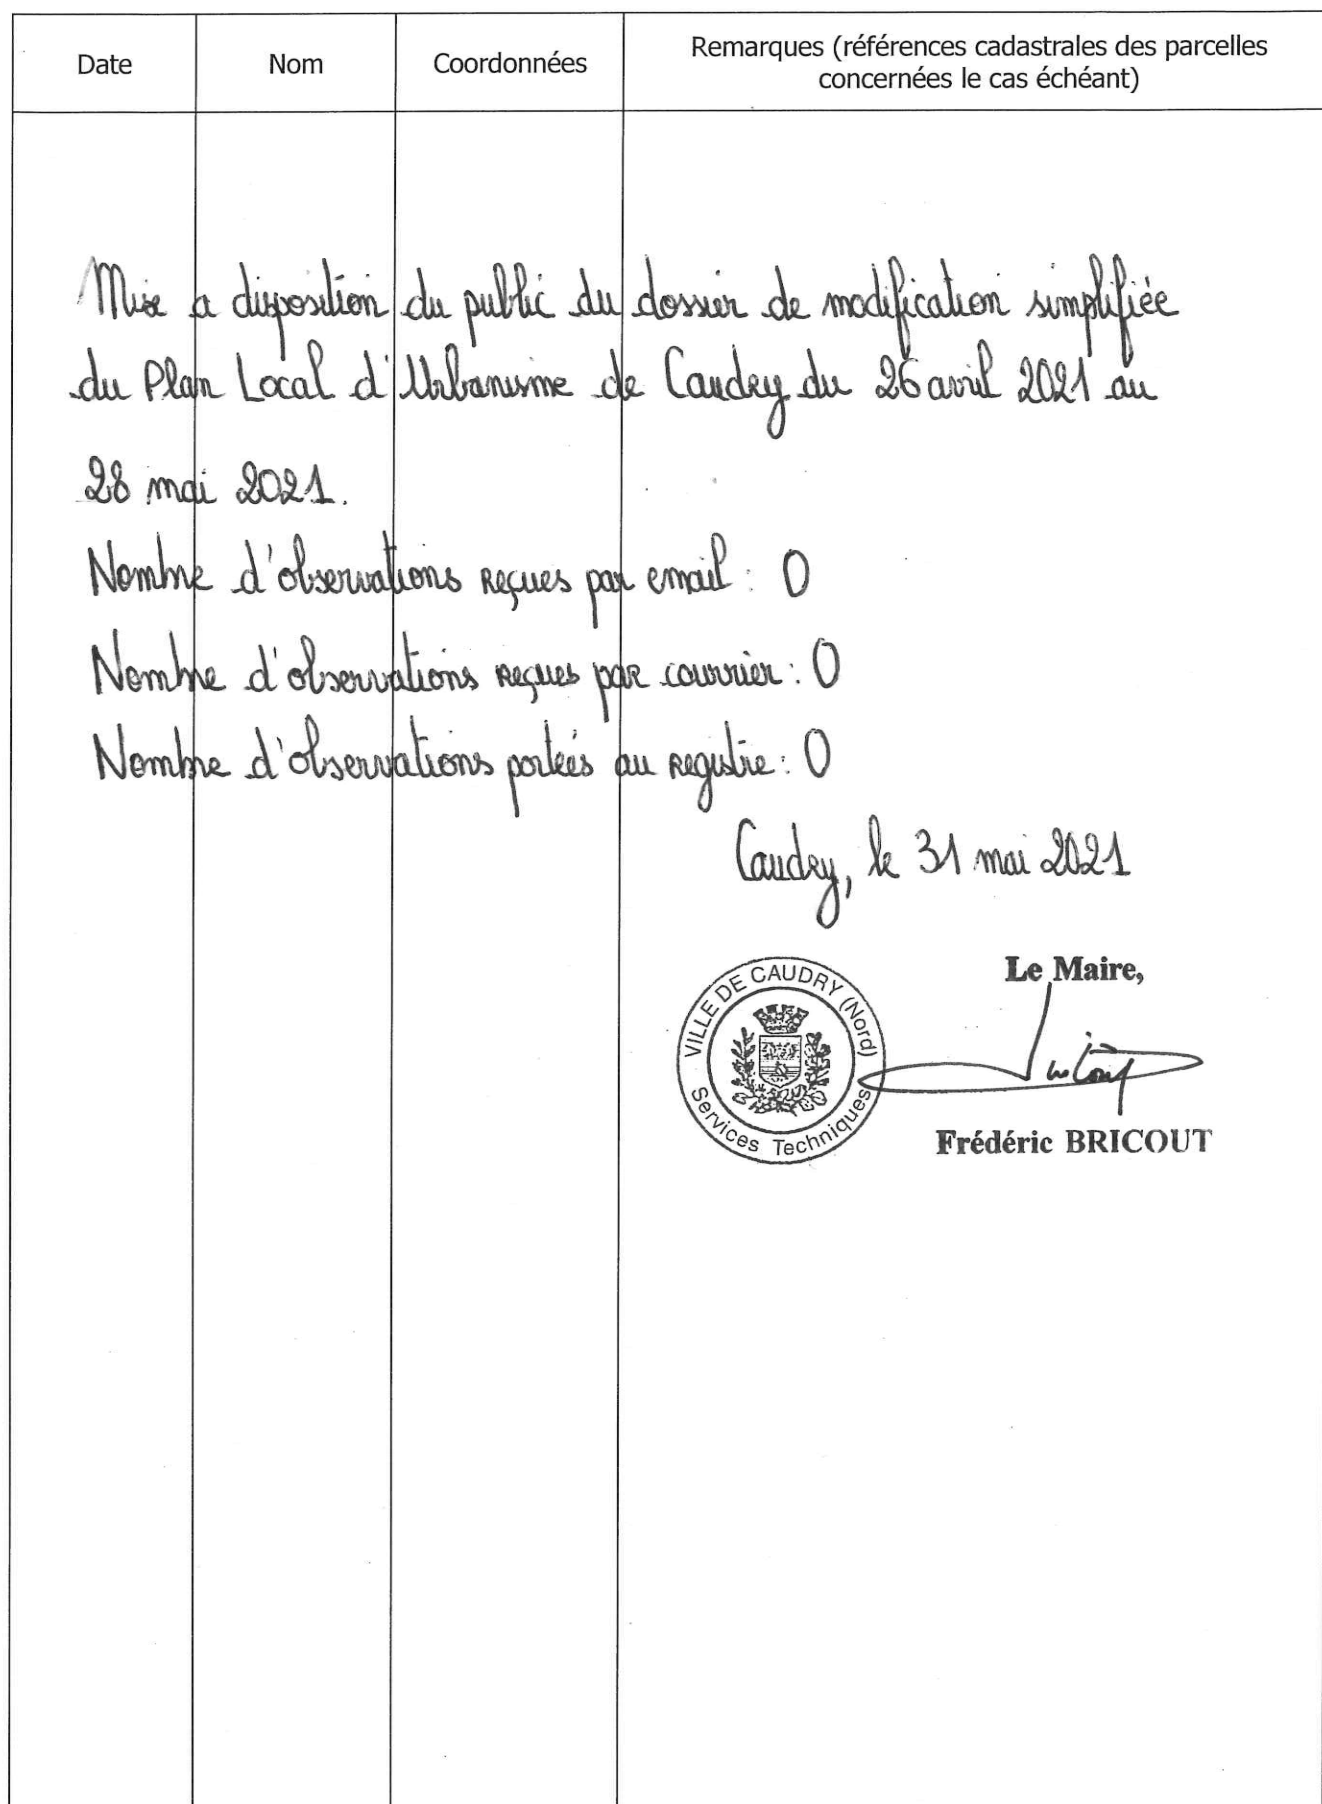 Date Nom Coordonnées Remarques (références cadastrales des parcelles
concernées le cas échéant)
Mise a disposition du public du dossier de modification simplifiée
du Plan Local d'Urbanisme de Caudry du 26 avril 2021 au
28 mai 2021.
Nombre d'observations reçues par email : 0
Nombre d'observations reçues par courrier : 0
Nombre d'observations portées au registre : 0
Caudry, le 31 mai 2021
VILLE DE CAUDRY (Nord)
Services Techniques
Le Maire,
Frédéric BRICOUT